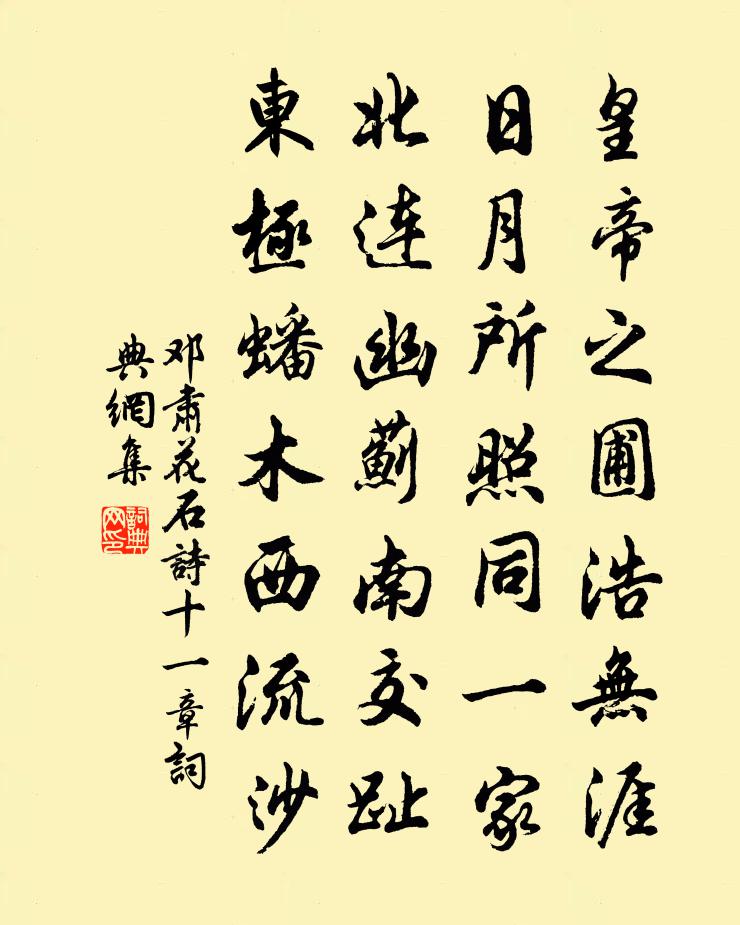 皇帝之圃浩無涯
日月所照同一家
北連幽薊南交趾
東極蟠木西流沙
邓肅花石詩十一章詞
典網集
詞典
网印